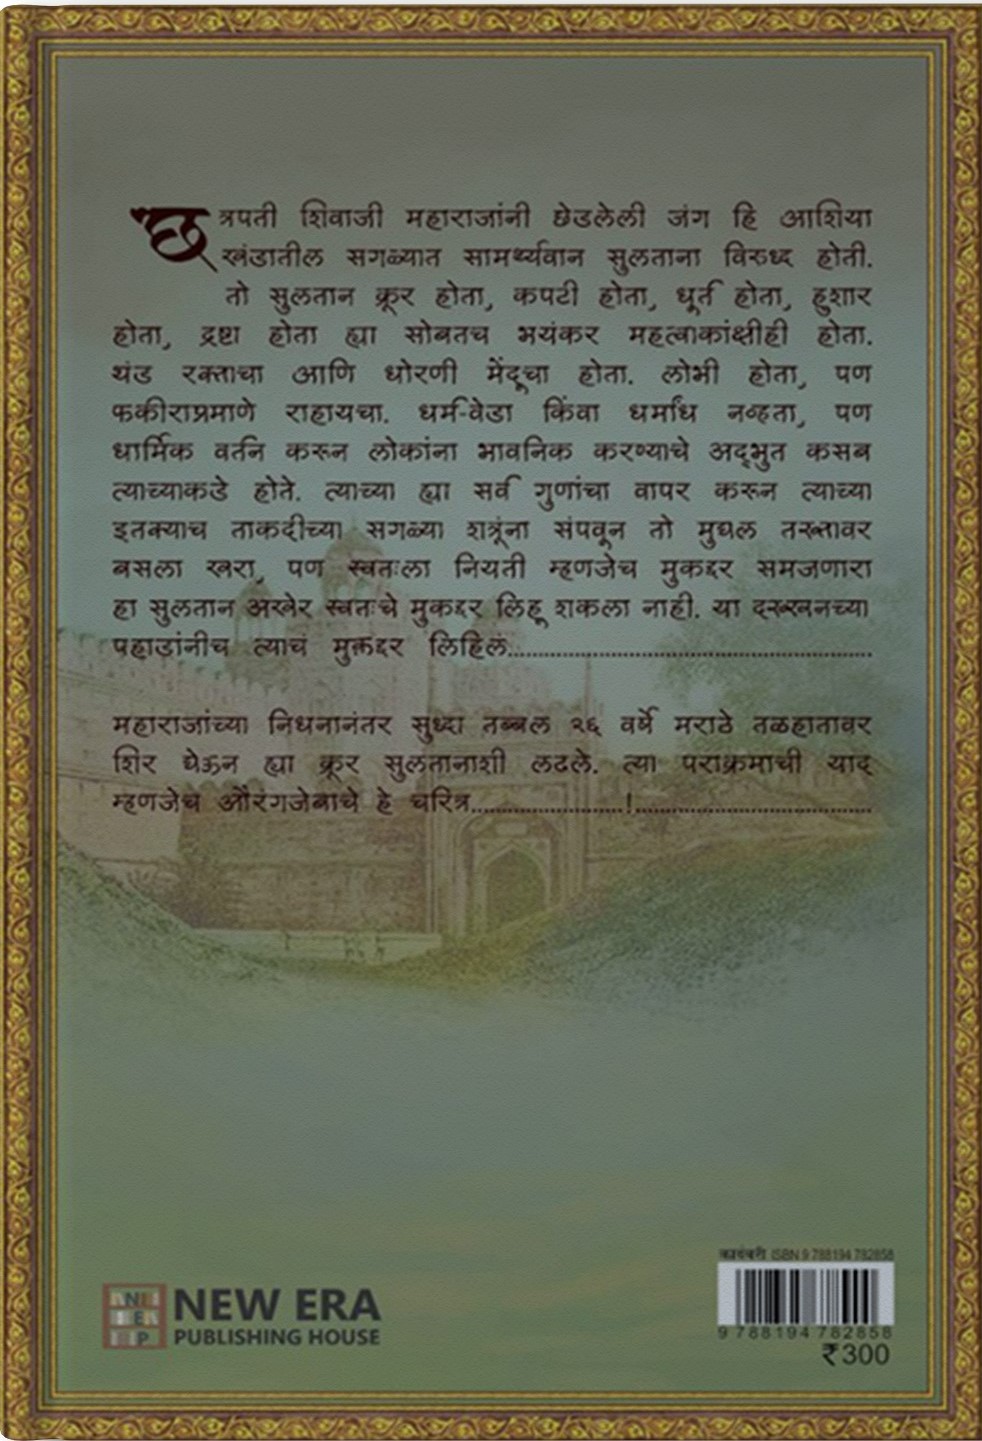 छत्रपती शिवाजी महाराजांनी छेडलेली जंग हि आशिया
खंडातील सगळ्यात सामर्थ्यवान सुलताना विरुध्द होती.
तो सुलतान क्रूर होता, कपटी होता, धूर्त होता, हुशार
होता, द्रष्टा होता ह्या सोबतच भयंकर महत्वाकांक्षीही होता.
थंड रक्ताचा आणि धोरणी मेंदूचा होता. लोभी होता, पण
फकीराप्रमाणे राहायचा. धर्म-वेडा किंवा धर्मांध नव्हता, पण
धार्मिक वर्तन करून लोकांना भावनिक करण्याचे अद्‌भुत कसब
त्याच्याकडे होते. त्याच्या ह्या सर्व गुणांचा वापर करून त्याच्या
इतक्याच ताकदीच्या सगळ्या शत्रूंना संपवून तो मुघल तख्तावर
बसला खरा, पण स्वतःला नियती म्हणजेच मुकद्दर समजणारा
हा सुलतान अखेर स्वतःचे मुकद्दर लिहू शकला नाही. या दख्खनच्या
पहाडांनीच त्याचं मुकद्दर लिहिलं.......................................................
महाराजांच्या निधनानंतर सुध्दा तब्बल २६ वर्षे मराठे तळहातावर
शिर घेऊन ह्या क्रूर सुलतानाशी लढले. त्या पराक्रमाची याद
म्हणजेच औरंगजेबाचे हे चरित्र.......................!....................................
कादंबरी ISBN 9 788194 782858
NEP
NEW ERA
PUBLISHING HOUSE
9 788194 782858
₹300